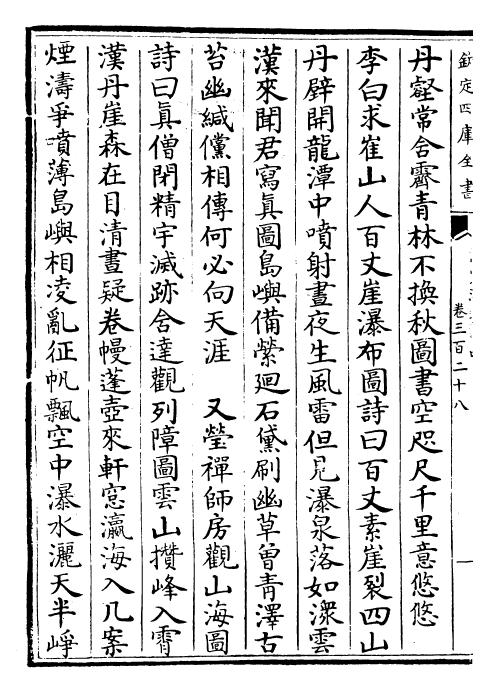 丹壑常含霽青林不換秋圖書空咫尺千里意悠悠
李白求崔山人百丈崖瀑布圖詩曰百丈素崖裂四山
丹壁開龍潭中噴射晝夜生風雷但見瀑泉落如潨雲
漢來聞君寫真圖島嶼備縈迴石黛刷幽草曾青澤古
苔幽緘儻相傳何必向天涯　又瑩禪師房觀山海圖
詩曰真僧閉精宇滅跡含達觀列障圖雲山攢峰入霄
漢丹崖森在目清晝疑卷幔蓬壺來軒窓瀛海入几案
煙濤爭噴薄島嶼相凌亂征帆飄空中瀑水灑天半崢
欽定四庫全書
卷三百二十八
一